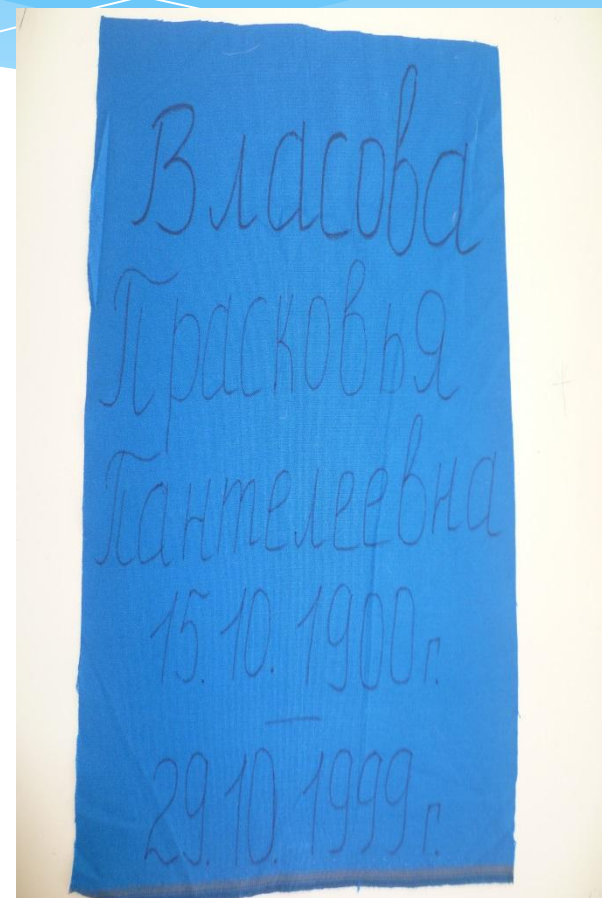 Власова
Прасковья
Пантелеевна
15.10.1900г.
—
29.10.1999г.